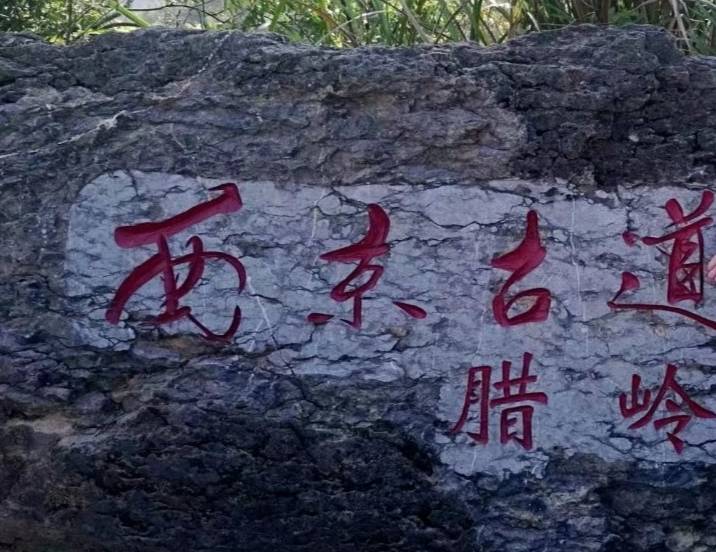 西京古道
腊岭